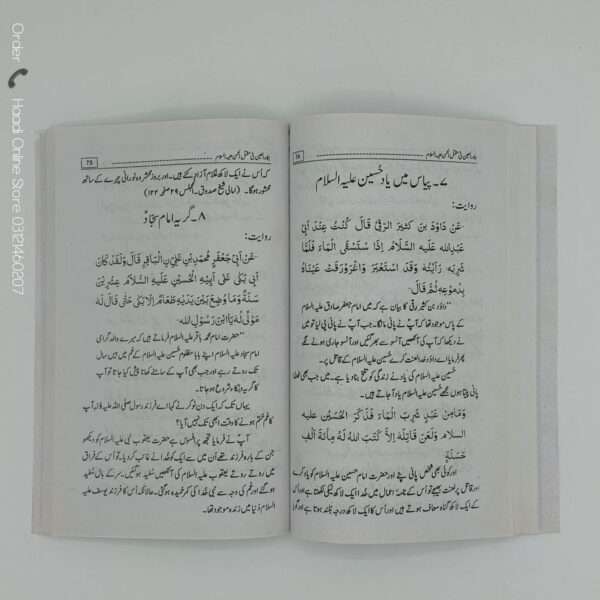 ۷۔ پیاس میں یادِ حُسین علیہ السلام
روایت:
عَنْ دَاوٗدَ بْنِ كَثِيْرِ الرَّقِّيِّ قَالَ كُنْتُ عِنْدَ اَبِيْ
عَبْدِاللهِ عَلَيْهِ السَّلَامُ اِذَا سْتَسْقَى الْمَاءَ فَلَمَّا
شَرِبَهٗ رَاَيْتُهٗ وَقَدِ اسْتَعْبَرَ وَاغْرَوْرَقَتْ عَيْنَاهُ
بِدُمُوْعِهٖ ثُمَّ قَالَ۔
”داؤد بن کثیر رقی کا بیان ہے کہ میں امام جعفر صادق علیہ السلام
کے پاس موجود تھا کہ آپؑ نے پانی مانگا۔ جب آپؑ نے پانی پی لیا تو میں
نے دیکھا کہ آپؑ کی آنکھیں آنسو سے بھر آئیں اور آنسو جاری ہونے لگے
پھر فرمایا اے داؤد خدا لعنت کرے حُسین علیہ السلام کے قاتل پر۔
حُسین علیہ السلام کی یاد نے زندگی کو تلخ بنا دیا ہے۔ میں جب بھی ٹھنڈا
پانی پیتا ہوں مجھے حُسین علیہ السلام یاد آجاتے ہیں۔
وَمَا مِنْ عَبْدٍ شَرِبَ الْمَاءَ فَذَكَرَ الْحُسَيْنَ عَلَيْهِ
السَّلام وَلَعَنَ قَاتِلَهٗ اِلَّا كَتَبَ اللهُ لَهٗ مِائَةَ اَلْفِ
حَسَنَةٍ
اور کوئی بھی شخص پانی پئے اور حضرت امام حسین علیہ السلام کو یاد کرے
اور قاتل پر لعنت بھیجے تو اُس کے نامہ اعمال میں خدا ایک لاکھ نیکی لکھتا ہے اور اُس
کے ایک لاکھ گناہ معاف ہوتے ہیں اور اُس کا ایک لاکھ درجہ بلند ہوتا ہے اور گویا
75
کہ اُس نے ایک لاکھ غلام آزاد کئے ہیں۔ اور بروز محشر وہ نورانی چہرے کے ساتھ
محشور ہوگا۔ (امالی شیخ صدوق۔ مجلس ۲۹ صفحہ ۱۲۲)
۸۔ گریہ امام سجادؑ
روایت:
عَنْ اَبِيْ جَعْفَرٍ مُحَمَّدِ بْنِ عَلِيِّ نِ الْبَاقِرِ قَالَ وَلَقَدْ كَانَ
اَبِيْ بَكٰى عَلٰى اَبِيْهِ الْحُسَيْنِ عَلَيْهِ السَّلَامُ عِشْرِيْنَ
سَنَةً وَمَا وُضِعَ بَيْنَ يَدَيْهِ طَعَامٌ اِلَّا بَكٰى حَتّٰى قَالَ لَهٗ
مَوْلًى لَهٗ يَا ابْنَ رَسُوْلِ الله۔
”حضرت امام محمد باقر علیہ السلام فرماتے ہیں کہ میرے والد گرامی
امام سجاد علیہ السلام اپنے بابا مظلوم حسین علیہ السلام کے غم میں بیس سال
تک روتے رہے اور جب بھی آپ کے سامنے کھانا پیش کیا جاتا تو آپ
کا گریہ و بُکا شروع ہو جاتا۔
یہاں تک کہ ایک دن نوکر نے کہا اے فرزند رسول صلی اللہ علیہ وآلہ آپ
کا غم ختم ہونے کا وقت ابھی تک نہیں آیا؟
آپؑ نے فرمایا تجھ پر افسوس ہے حضرت یعقوب نبی علیہ السلام کو دیکھو
جن کے بارہ فرزند تھے اُن میں سے ایک کو خُدا نے غائب کر دیا۔ تو اُس کے فراق
میں روتے روتے یعقوب علیہ السلام کی آنکھیں سفید ہو گئیں۔ سر کے بال سفید
ہو گئے اور غم کی وجہ سے نبی خُدا کی کمر خمیدہ ہو گئی۔ حالانکہ اُس کا فرزند یوسف علیہ
السلام دُنیا میں زندہ موجود تھا۔
Order
Haadi Online Store 03121460207